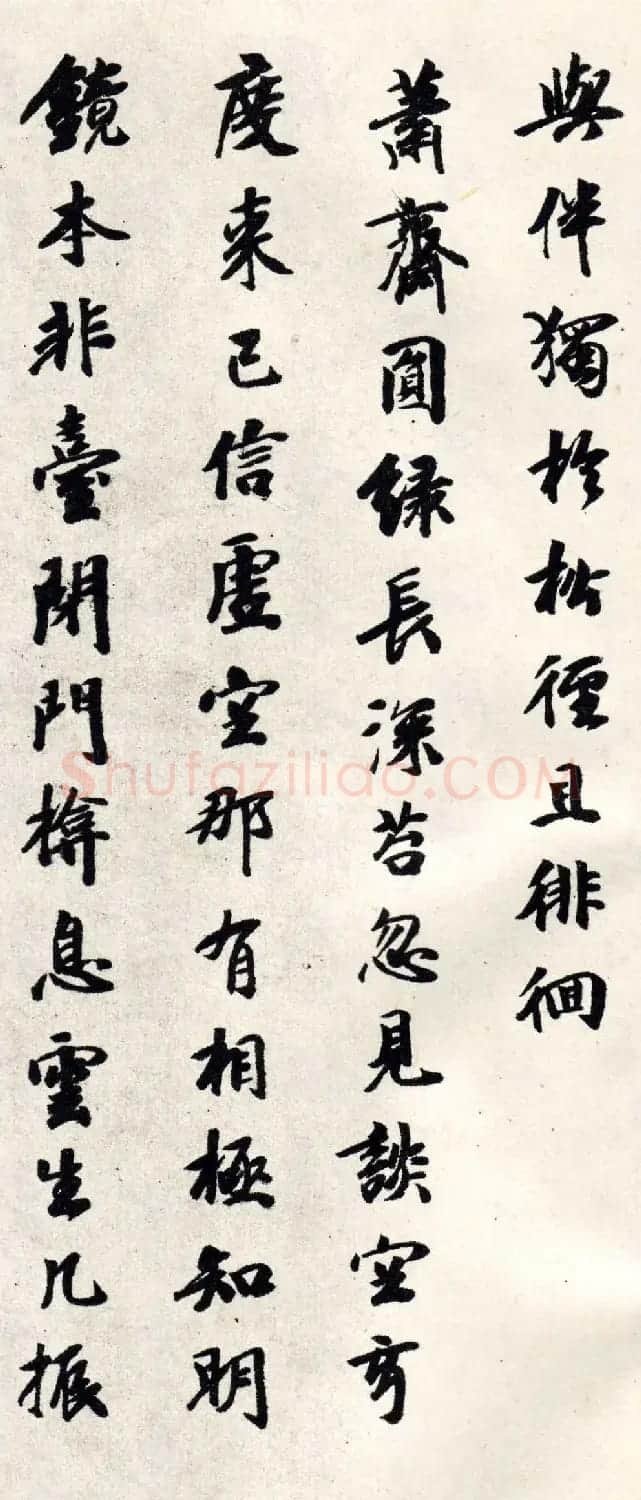 與伴獨於松徑且徘徊
蕭齋圓緑長深苔忽見談空
度来已信虛空那有相極知明
鏡本非臺閉門揜息雲生几振
Shufaziliao.COM